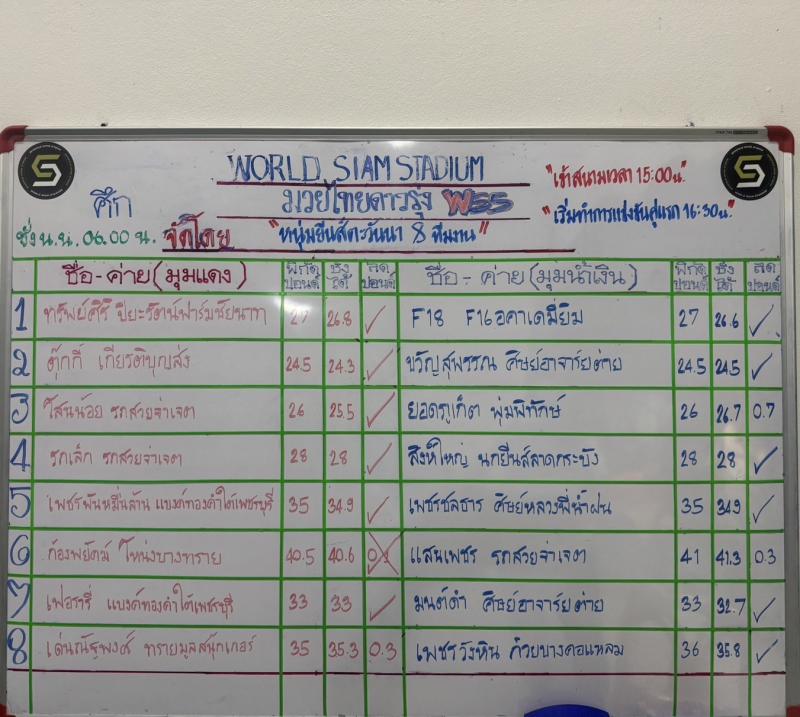 WORLD SIAM STADIUM
ศึก มวยไทยดาวรุ่ง WSS
"เข้าสนามเวลา 15:00น."
"เริ่มทำการแข่งขันคู่แรก 16:30น."
ชั่ง น.น. 06.00 น. จัดโดย "หนุ่มยีนส์ตะวันนา 8 ทีมงาน"
ชื่อ-ค่าย(มุมแดง) พิกัดปอนด์ ชั่งได้ ลดปอนด์ ชื่อ-ค่าย(มุมน้ำเงิน) พิกัดปอนด์ ชั่งได้ ลดปอนด์
1 ทรัพย์ศิริ ปิยะรัตน์ฟาร์มชัยนาท 27 26.8 ✓ F18 F16อคาเดมี่ยิม 27 26.6 ✓
2 ตุ๊กกี้ เกียรติบุญส่ง 24.5 24.3 ✓ ขวัญสุพรรณ ศิษย์อาจารย์ต่าย 24.5 24.5 ✓
3 โสนน้อย รถสวยจ่าเจตา 26 25.5 ✓ ยอดภูเก็ต พุ่มพิทักษ์ 26 26.7 0.7
4 รถเล็ก รถสวยจ่าเจตา 28 28 ✓ สิงห์ใหญ่ นกยีนส์ลาดกระบัง 28 28 ✓
5 เพชรพันหมื่นล้าน แบงค์ทองคำใต้เพชรบุรี่ 35 34.9 ✓ เพชรชลธาร ศิษย์หลวงพี่น้ำฝน 35 34.9 ✓
6 ก้องพยัคฆ์ โหน่งบางทราย 40.5 40.6 0.1 แสนเพชร รถสวยจ่าเจตา 41 41.3 0.3
7 เฟอรารี่ แบงค์ทองคำใต้เพชรบุรี 33 33 ✓ มนต์ดำ ศิษย์อาจารย์ต่าย 33 32.7 ✓
8 เด่นณัฐพงศ์ ทรายมูลสนุ๊กเกอร์ 35 35.3 0.3 เพชรวังหิน ก๋วยบางคอแหลม 36 35.8 ✓